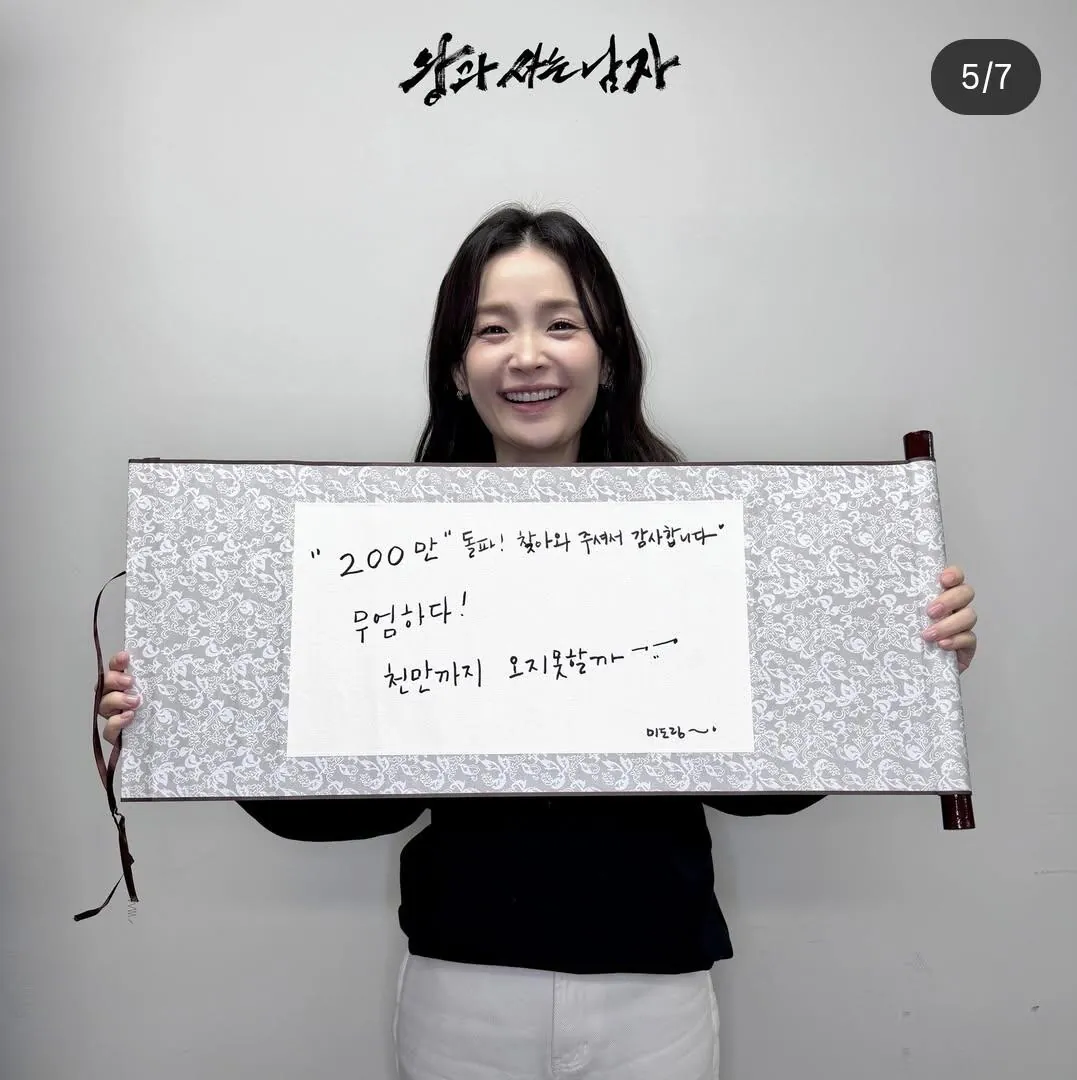 왕과 사는 남자
5/7
"200만" 돌파! 찾아와 주셔서 감사합니다
무엄하다!
천만까지 오지못할까
미도랑~